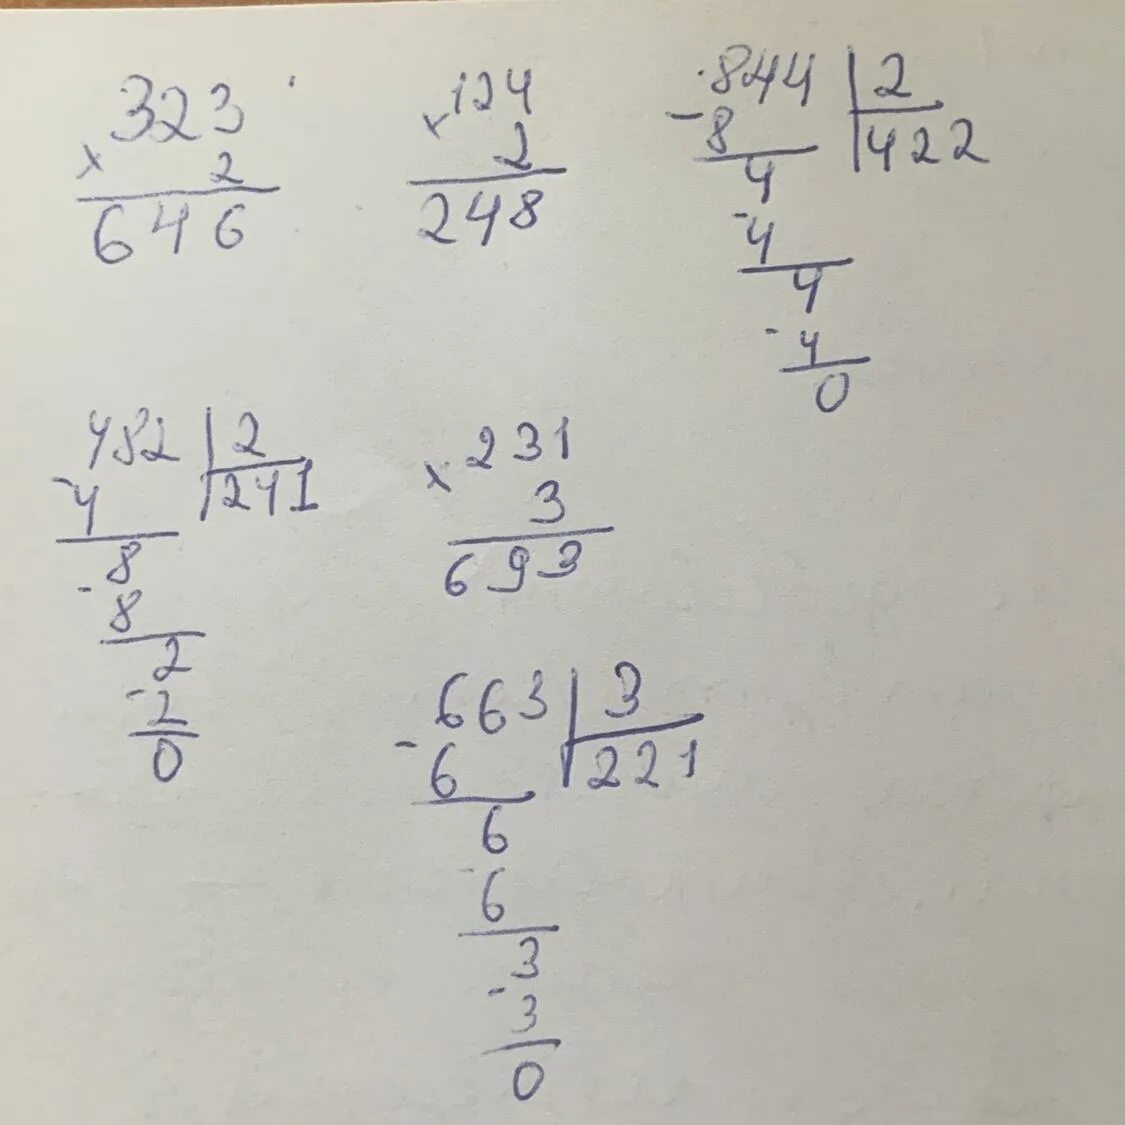 323
× 2
646
124
× 2
248
844 | 2
- 8 422
4
- 4
4
- 4
0
482 | 2
- 4 241
8
- 8
2
- 2
0
231
× 3
693
663 | 3
- 6 221
6
- 6
3
- 3
0